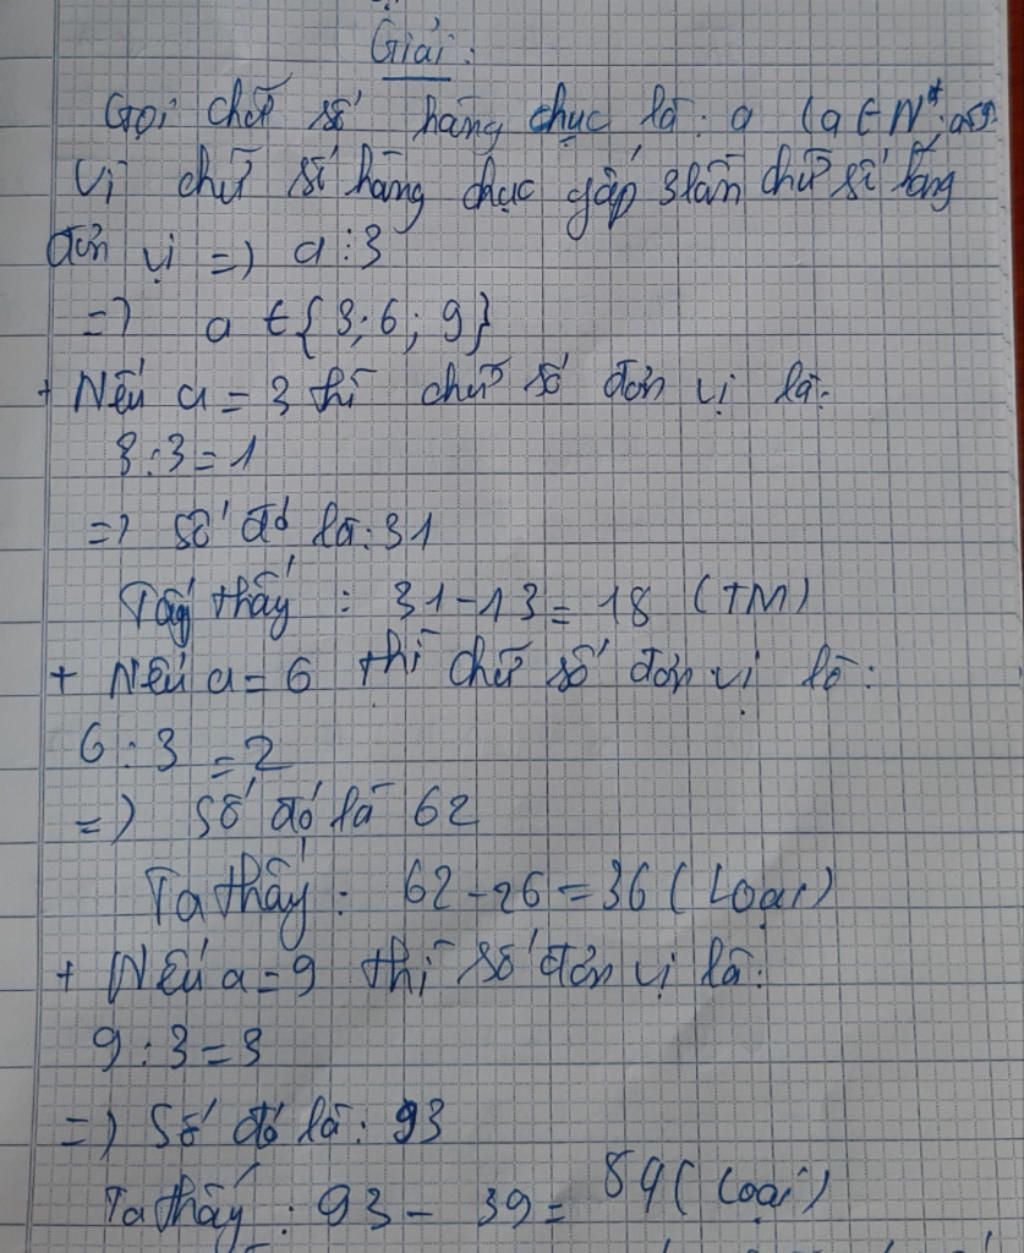 Giải:
Gọi chữ số hàng chục là: a (a ∈ N*; a≤9
Vì chữ số hàng chục gấp 3 lần chữ số hàng
đơn vị => a ⋮ 3
=> a ∈ {3; 6; 9}
+ Nếu a = 3 thì chữ số đơn vị là:
3 : 3 = 1
=> Số đó là: 31
Ta thấy : 31 - 13 = 18 (TM)
+ Nếu a = 6 thì chữ số đơn vị là:
6 : 3 = 2
=> Số đó là 62
Ta thấy : 62 - 26 = 36 (Loại)
+ Nếu a = 9 thì số đơn vị là:
9 : 3 = 3
=> Số đó là: 93
Ta thấy : 93 - 39 = 54 (Loại)